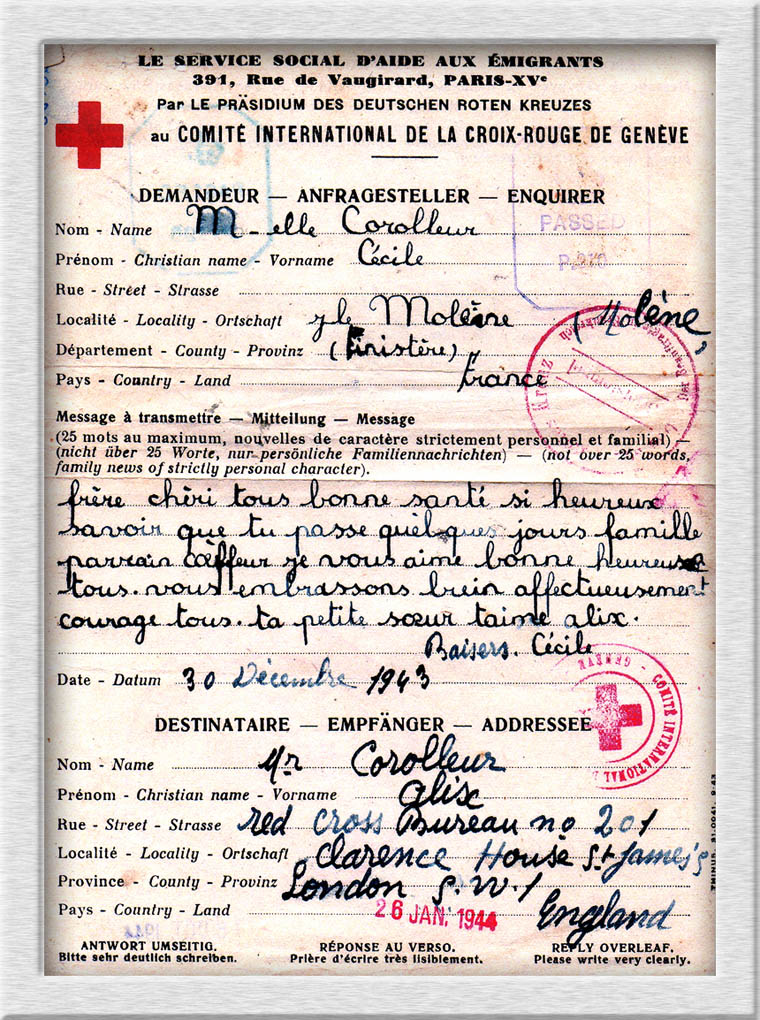 LE SERVICE SOCIAL D'AIDE AUX ÉMIGRANTS
391, Rue de Vaugirard, PARIS-XVe
Par LE PRÄSIDIUM DES DEUTSCHEN ROTEN KREUZES
au COMITÉ INTERNATIONAL DE LA CROIX-ROUGE DE GENÈVE
DEMANDEUR — ANFRAGESTELLER — ENQUIRER
Nom - Name M-elle Corolleur
PASSED
Prénom - Christian name - Vorname Cécile
Rue - Street - Strasse
Localité - Locality - Ortschaft yle Molène (Molène,
Département - County - Provinz (Finistère)
Pays - Country - Land France
Message à transmettre — Mitteilung — Message
(25 mots au maximum, nouvelles de caractère strictement personnel et familial) —
(nicht über 25 Worte, nur persönliche Familiennachrichten) — (not over 25 words,
family news of strictly personal character).
frère chéri tous bonne santé si heureux
savoir que tu passe quelques jours famille
parrain coiffeur je vous aime bonne heureuse
tous. vous embrassons bien affectueusement
courage tous. ta petite sœur taime alix.
Baisers. Cécile
Date - Datum 30 Décembre 1943
COMITÉ INTERNATIONAL GENÈVE
DESTINATAIRE — EMPFÄNGER — ADDRESSEE
Nom - Name Mr Corolleur
Prénom - Christian name - Vorname alix
Rue - Street - Strasse red cross Bureau no 201
Localité - Locality - Ortschaft Clarence House St James's
Province - County - Provinz London S.W.1
Pays - Country - Land England
26 JAN. 1944
ANTWORT UMSEITIG. RÉPONSE AU VERSO. REPLY OVERLEAF.
Bitte sehr deutlich schreiben. Prière d'écrire très lisiblement. Please write very clearly.